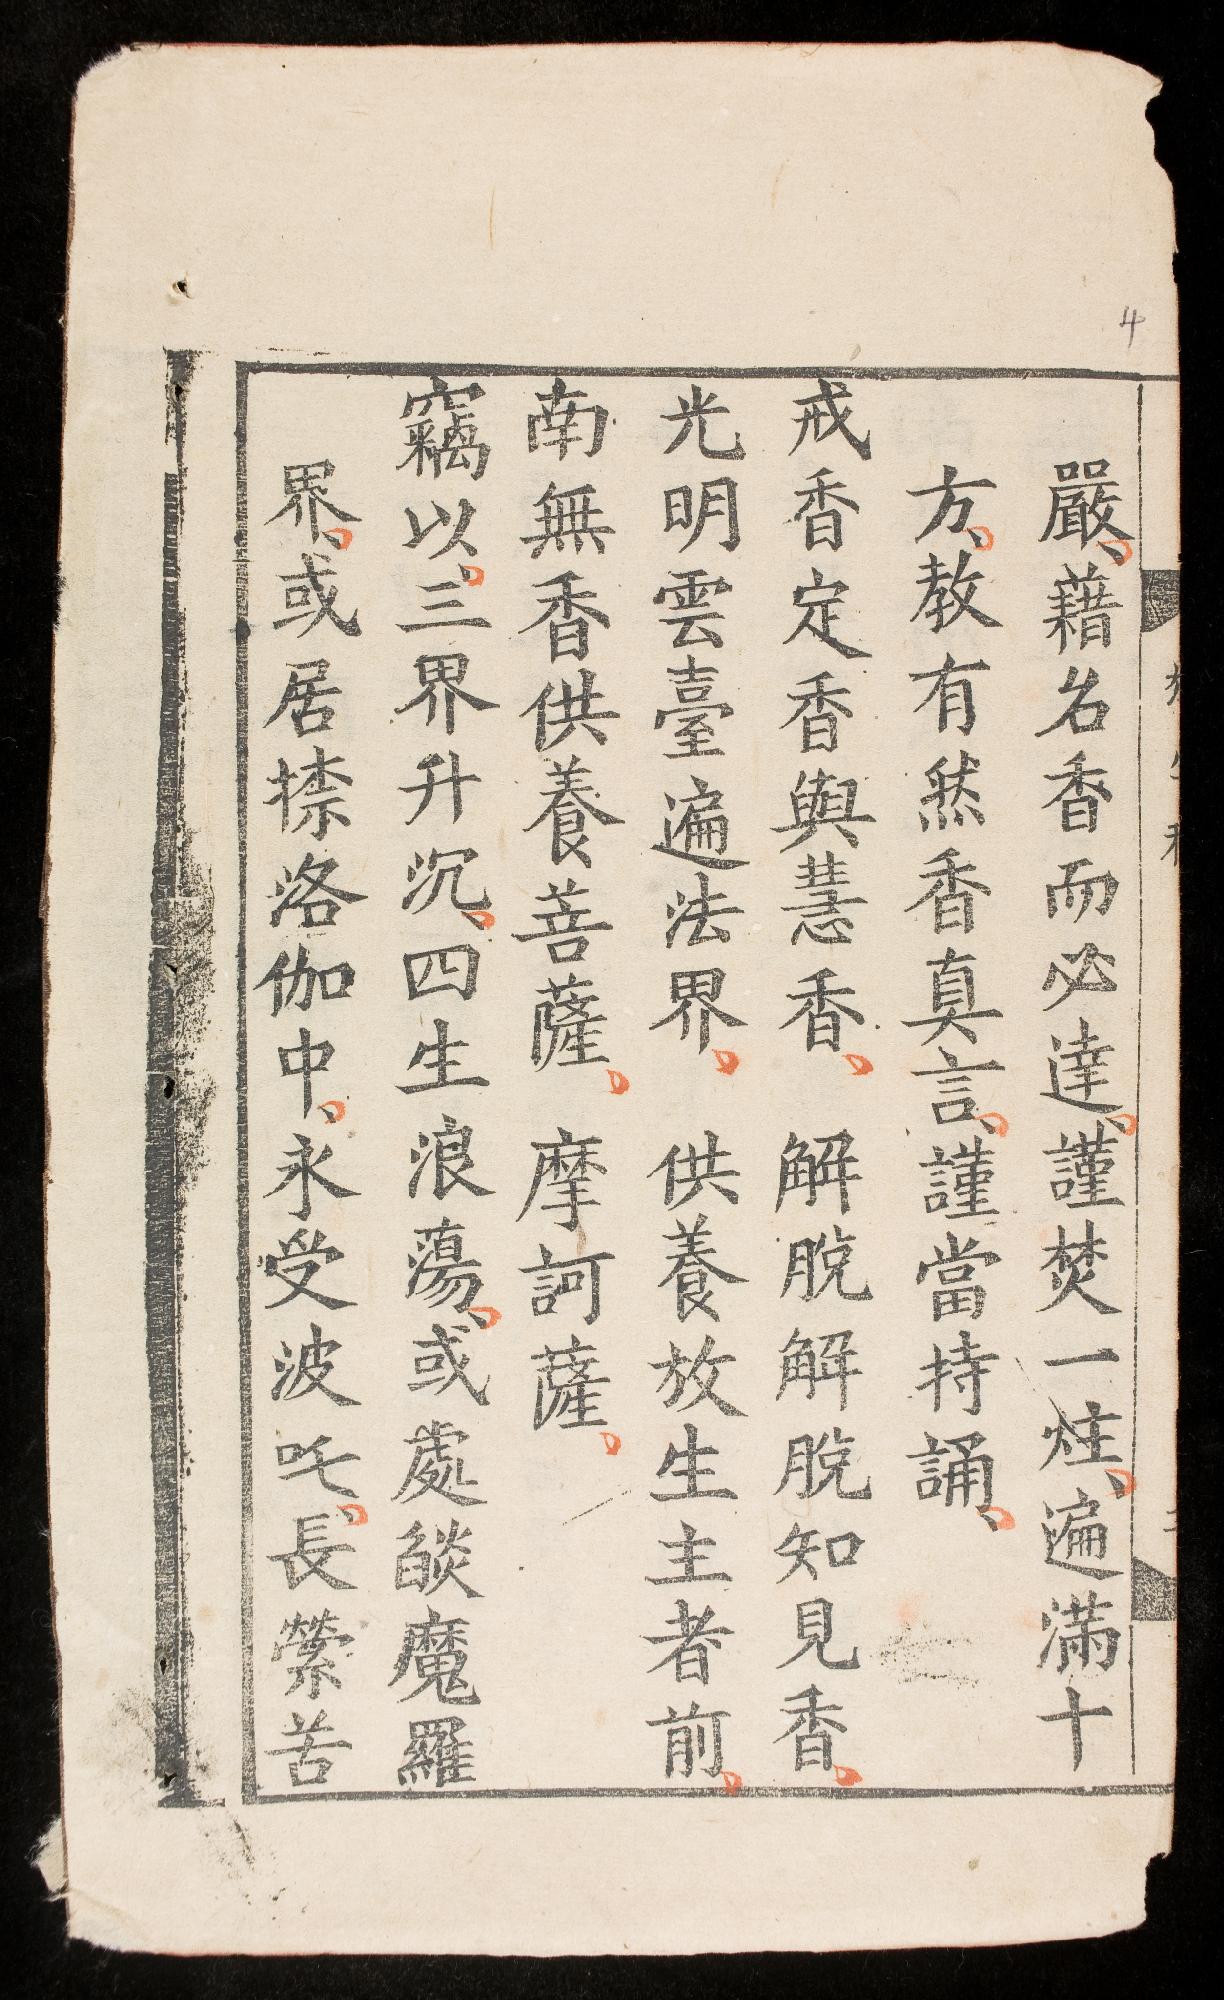 4
嚴藉名香而必達謹焚一炷遍滿十
方教有然香真言謹當持誦
戒香定香與慧香 解脫解脫知見香
光明雲臺遍法界 供養放生主者前
南無香供養菩薩 摩訶薩
竊以三界升沉四生浪蕩或處燄魔羅
界或居㮈洛伽中永受波吒長縈苦